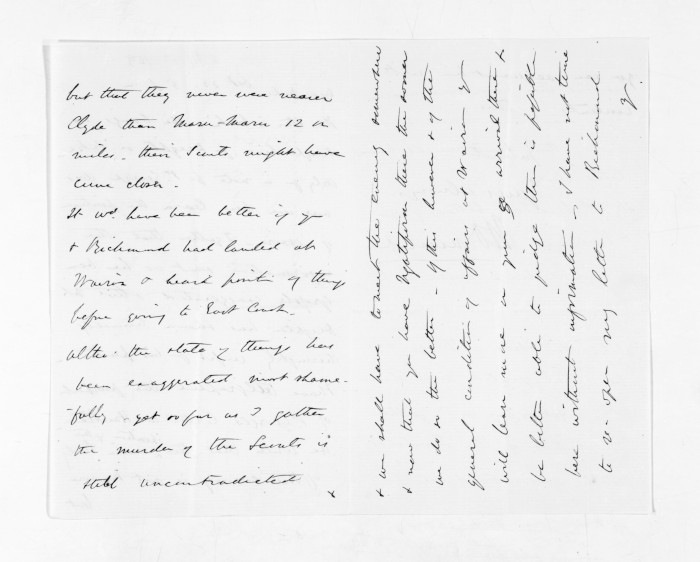 but that they never were nearer
Clyde than Maru-Maru 12 or
miles. their Scouts might have
come closer.
It wd. have been better if you
& Richmond had landed at
Wairoa & heard position of things
before going to East Coast.
altho' the state of things has
been exaggerated most shame-
-fully - yet so far as I gather
the murder of the Scouts is
still uncontradicted &
& we shall have to meet the enemy somewhere
& now that you have there the sooner
we do so the better - of this however & of the
general condition of affairs at Wairoa you
will learn more on your arrival there &
be better able to judge than is possible
here without information - I have not time
to re-open my letter to Richmond